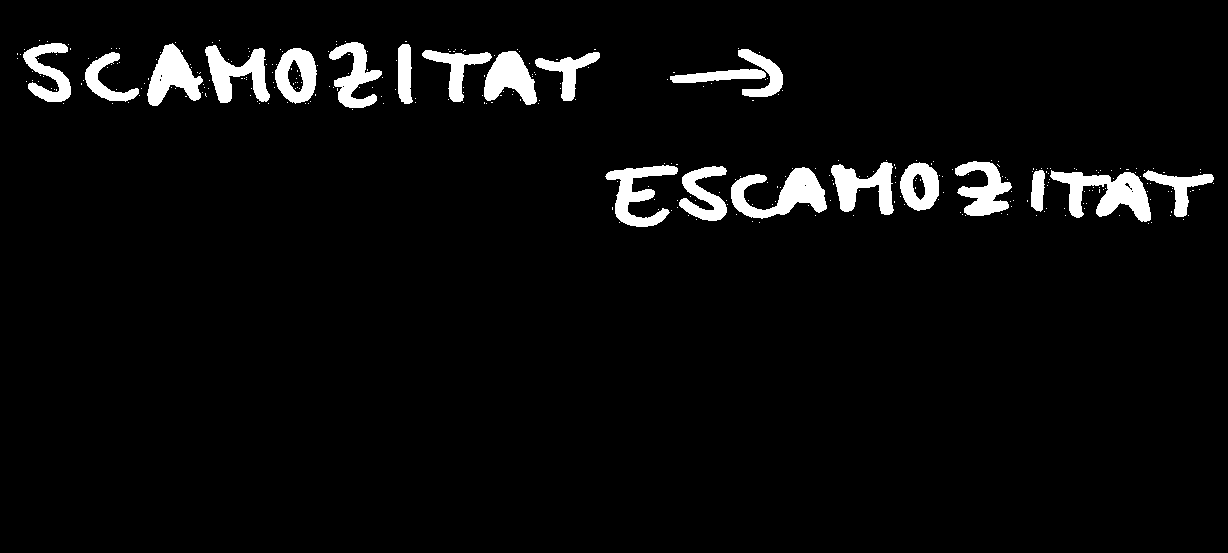 SCAMOZITAT →
ESCAMOZITAT